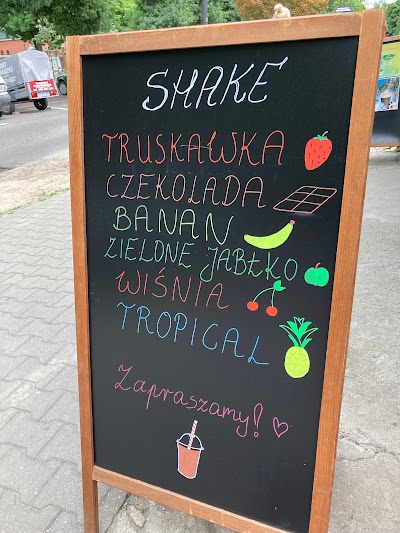 SHAKE
TRUSKAWKA
CZEKOLADA
BANAN
ZIELONE JABŁKO
WIŚNIA
TROPICAL
Zapraszamy!